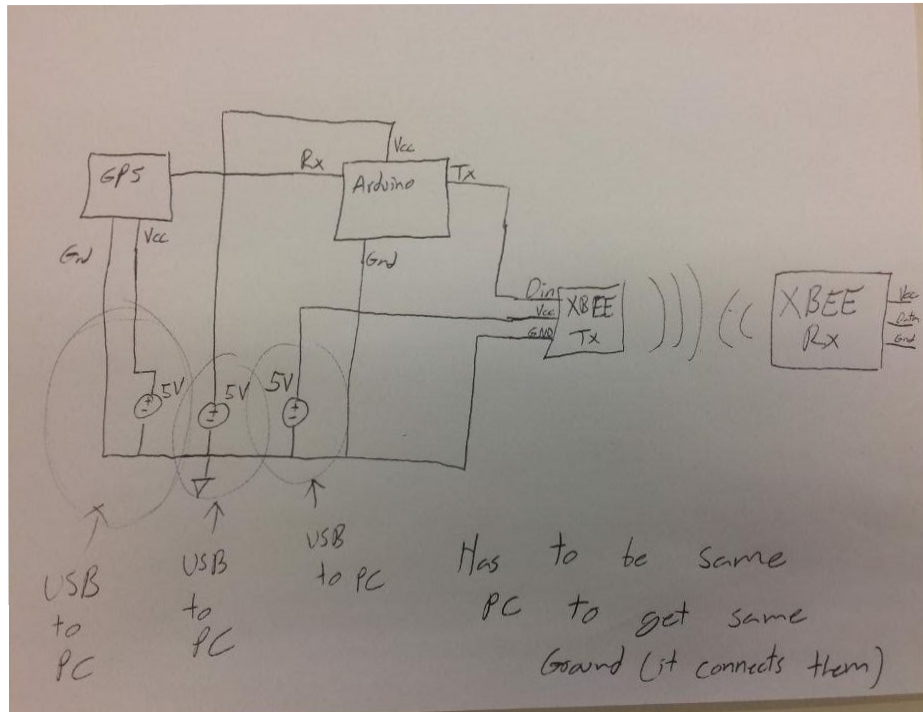 GPS
Gnd
Vcc
Rx
Vcc
Arduino
Tx
Gnd
Din
Vcc
GND
XBEE
Tx
XBEE
Rx
Vcc
Data
Gnd
5V
5V
5V
USB
to
PC
USB
to
PC
USB
to PC
Has to be same
PC to get same
Ground (it connects them)